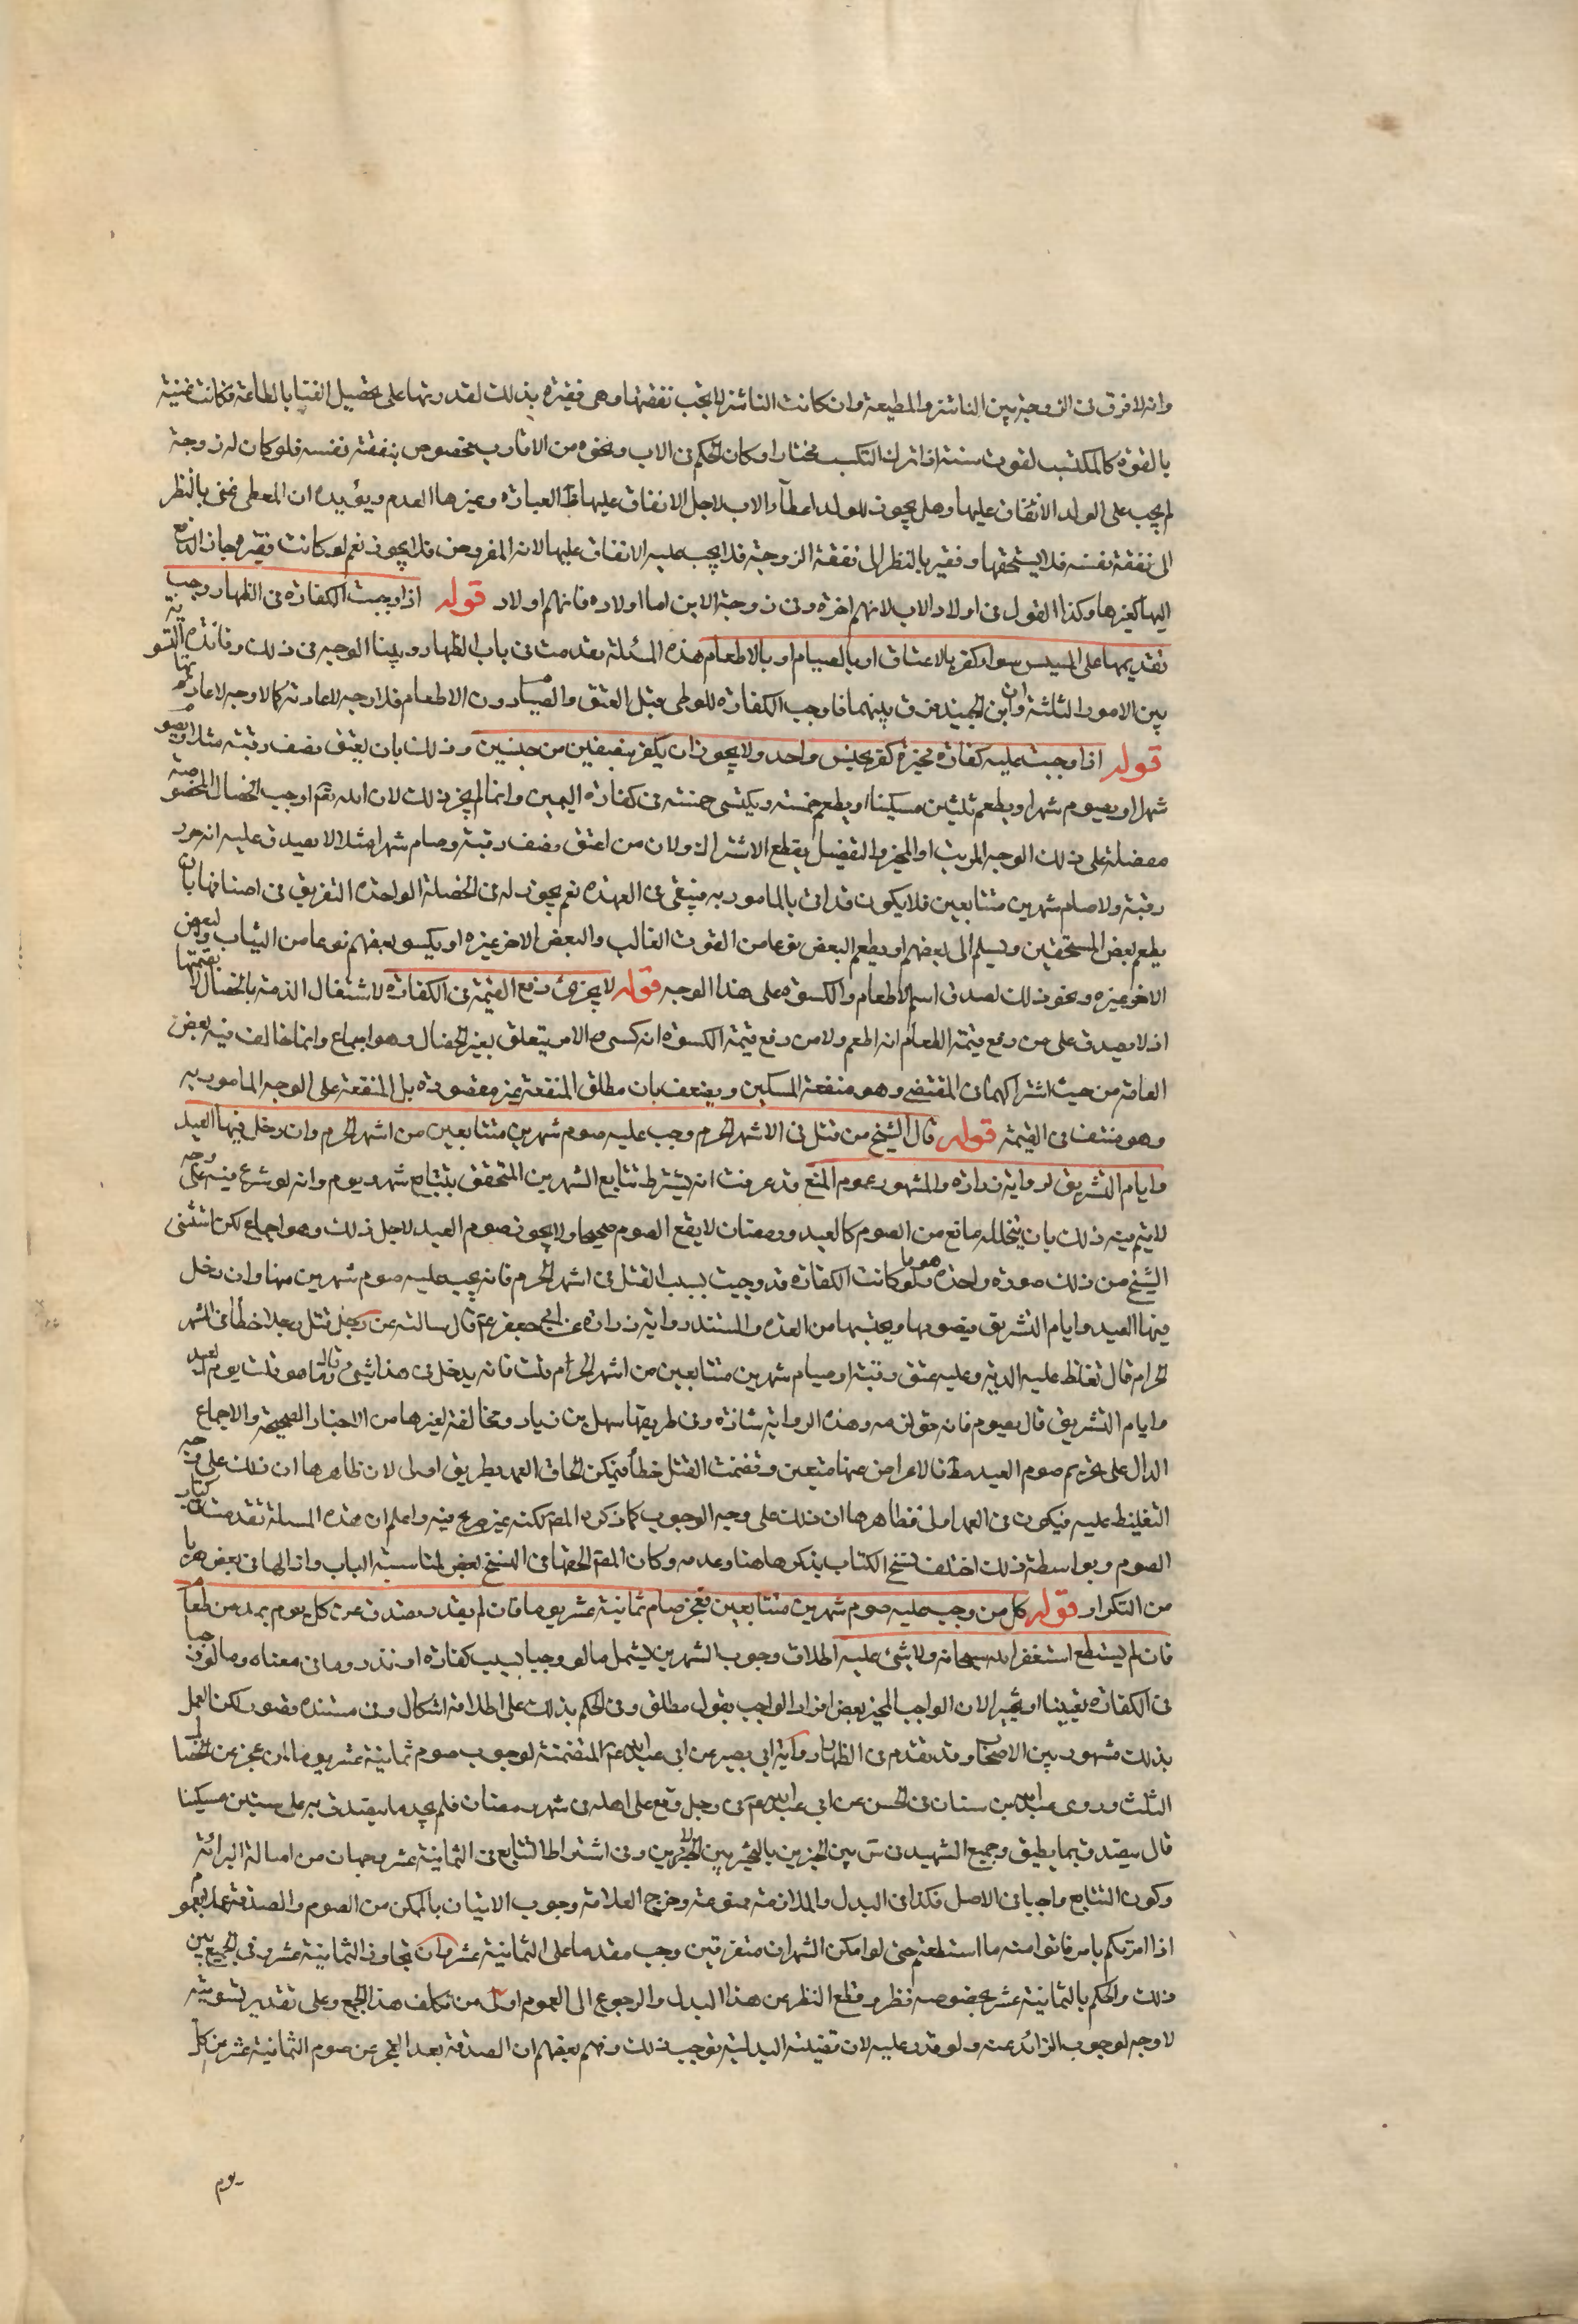 وانه لا فرق فى الزوجة بين الناشز والمطيعة وان كانت الناشز لا تجب نفقتها وهى فقيرة بذلك لقدرتها على تحصيل الغنا بالطاعة فكانت غنية
بالقوة كالمكتسب لقوت سنته اذا ترك التكسب مختارا وكان الحكم فى الاب ونحوه من الاقارب مخصوص بنفقة نفسه فلو كان له زوجة
لم يجب على الولد الانفاق عليها وهل يجوز للولد اعطآء الاب لاجل الانفاق عليها ظ العبارة وغيرها العدم ويؤيده ان المعطى غنى بالنظر
الى نفقة نفسه فلا يستحقها وفقير بالنظر الى نفقة الزوجة فلا يجب عليه الانفاق عليها لانه المفروض فلا يجوز نعم لو كانت فقيرة جاز الدفع
اليها كغيرها وكذا القول فى اولاد الاب لانهم اخرة وفى زوجة الابن اما اولاده فانهم اولاد قوله اذا وجبت الكفارة فى الظهار وجب
تقديمها على المسيس سواء كفر بالاعتاق او بالصيام او بالاطعام هذه المسئلة تقدمت فى باب الظهار وبينا الوجه فى ذلك وفائدة التسوية
بين الامور الثلثة وان ابن الجنيد فرق بينهما فاوجب الكفارة للوطى قبل العتق والصيام دون الاطعام فلا وجه لاعادته كما لا وجه لاعادتها
قوله اذا وجبت عليه كفارة مخيرة كفر بجنس واحد ولا يجوز ان يكفر بنصفين من جنسين وذلك بان يعتق نصف رقبة مثلا ويصوم
شهرا او يصوم شهرا ويطعم ثلثين مسكينا او يطعم خمسة ويكسى خمسة فى كفارة اليمين وانما لم يجز ذلك لان الله تعم اوجب الخصال المخصوصة
مفصلة على ذلك الوجه المرتب او المخير والتفضيل يقطع الاشتراك ولان من اعتق نصف رقبة وصام شهرا مثلا لا يصدق عليه انه حرر
رقبة ولا صام شهرين متتابعين فلا يكون قد اتى بالمامور به فيبقى فى العهدة نعم يجوز له فى الخصلة الواحدة التفريق فى اصنافها بان
يطعم بعض المستحقين ويسلم الى بعضهم او يطعم البعض نوعا من القوت الغالب والبعض الاخر غيره او يكسو بعضهم نوعا من الثياب والبعض
الاخر غيره ونحو ذلك لصدق اسم الاطعام والكسوة على هذا الوجه قوله لا يجزئ دفع القيمة فى الكفارة لاشتغال الذمة بالخصال لا بقيمتها
اذ لا يصدق على من دفع قيمة الطعام انه اطعم ولا من دفع قيمة الكسوة انه كسى والامر يتعلق بغير الخصال وهو اجماع وانما خالف فيه بعض
العامة من حيث اشتراكهما فى المقتضى وهو منفعة المسكين ويضعف بان مطلق المنفعة غير مقصودة بل المنفعة على الوجه المامور به
وهو منتف فى القيمة قوله قال الشيخ من قتل فى الاشهر الحرم وجب عليه صوم شهرين متتابعين من اشهر الحرم وان دخل فيها العيد
وايام التشريق لرواية زرارة والمشهور عموم المنع قد عرفت انه يشترط تتابع الشهرين المتحقق بتتابع شهر ويوم وانه لو شرع فيه على وجه
لا يتم فيه ذلك بان يتخلله مانع من الصوم كالعيد ورمضان لا يقع الصوم صحيحا ولا يجوز صوم العيد لاجل ذلك وهو اجماع لكن استثنى
الشيخ من ذلك صورة واحدة هو ما لو كانت الكفارة قد وجبت بسبب القتل فى اشهر الحرم فانه يجب عليه صوم شهرين منها وان دخل
فيها العيد وايام التشريق فيصومها ويحتسبها من العدة والمستند رواية زرارة عن ابى جعفر ع قال سالته عن رجل قتل رجلا خطأ فى الشهر
الحرام قال تغلظ عليه الدية وعليه عتق رقبة او صيام شهرين متتابعين من اشهر الحرام قلت فانه يدخل فى هذا شئ قال وما هو قلت يوم العيد
وايام التشريق قال يصوم فانه حق لزمه وهذه الرواية شاذة وفى طريقها سهل بن زياد ومخالفة لغيرها من الاخبار الصحيحة والاجماع
الدال على تحريم صوم العيد مط فالاعراض عنها متعين وتضمنت القتل خطأ فيمكن الحاق العمد بطريق اولى لان ظاهرها ان ذلك على وجه
التغليظ عليه فيكون فى العمد اولى فظاهرها ان ذلك على وجه الوجوب كما ذكره المص لكنه غير صريح فيه واعلم ان هذه المسئلة تقدمت فى كتاب
الصوم وبواسطة ذلك اختلف نسخ الكتاب بذكرها هنا وعدمه وكان المص الحقها فى النسخ بعض لمناسبة الباب وازالها فى بعض هربا
من التكرار قوله كل من وجب عليه صوم شهرين متتابعين فعجز صام ثمانية عشر يوما فان لم يقدر تصدق عن كل يوم بمد من طعام
فان لم يستطع استغفر الله سبحانه ولا شئ عليه اطلاق وجوب الشهرين يشمل ما لو وجبا بسبب كفارة او نذر وما فى معناه وما لو وجبا
فى الكفارة تعيينا او تخييرا لان الواجب المخير بعض افراد الواجب بقول مطلق وفى الحكم بذلك على اطلاقه اشكال وفى مستنده قصور لكن العمل
بذلك مشهور بين الاصحاب وقد تقدم فى الظهار رواية ابى بصير عن ابى عبد الله ع المتضمنة لوجوب صوم ثمانية عشر يوما لمن عجز عن الخصال
الثلث وروى عبد الله بن سنان فى الحسن عن ابى عبد الله ع فى رجل وقع على اهله فى شهر رمضان فلم يجد ما يتصدق به على ستين مسكينا
قال يتصدق بما يطيق وجمع الشهيد فى س بين الخبرين بالتخيير بين الامرين وفى اشتراط التتابع فى الثمانية عشر وجهان من اصالة البرائة
وكون التتابع واجبا فى الاصل فكذا فى البدل والملازمة ممنوعة وخرج العلامة وجوب الاتيان بالممكن من الصوم والصدقة عملا بعموم
اذا امرتكم بامر فاتوا منه ما استطعتم حتى لو امكن الشهران متفرقين وجب مقدما على الثمانية عشر وان تجاوز الثمانية عشر وفى الجمع بين
ذلك والحكم بالثمانية عشر بخصوصه نظر وقطع النظر عن هذا البدل والرجوع الى العموم اولى من تكلف هذا الجمع وعلى تقدير تسويته
لا وجه لوجوب الزائد عنه ولو قدر عليه لان قضية البدلية توجب ذلك وفهم بعضهم ان الصدقة بعد العجز عن صوم الثمانية عشر عن كل
يوم